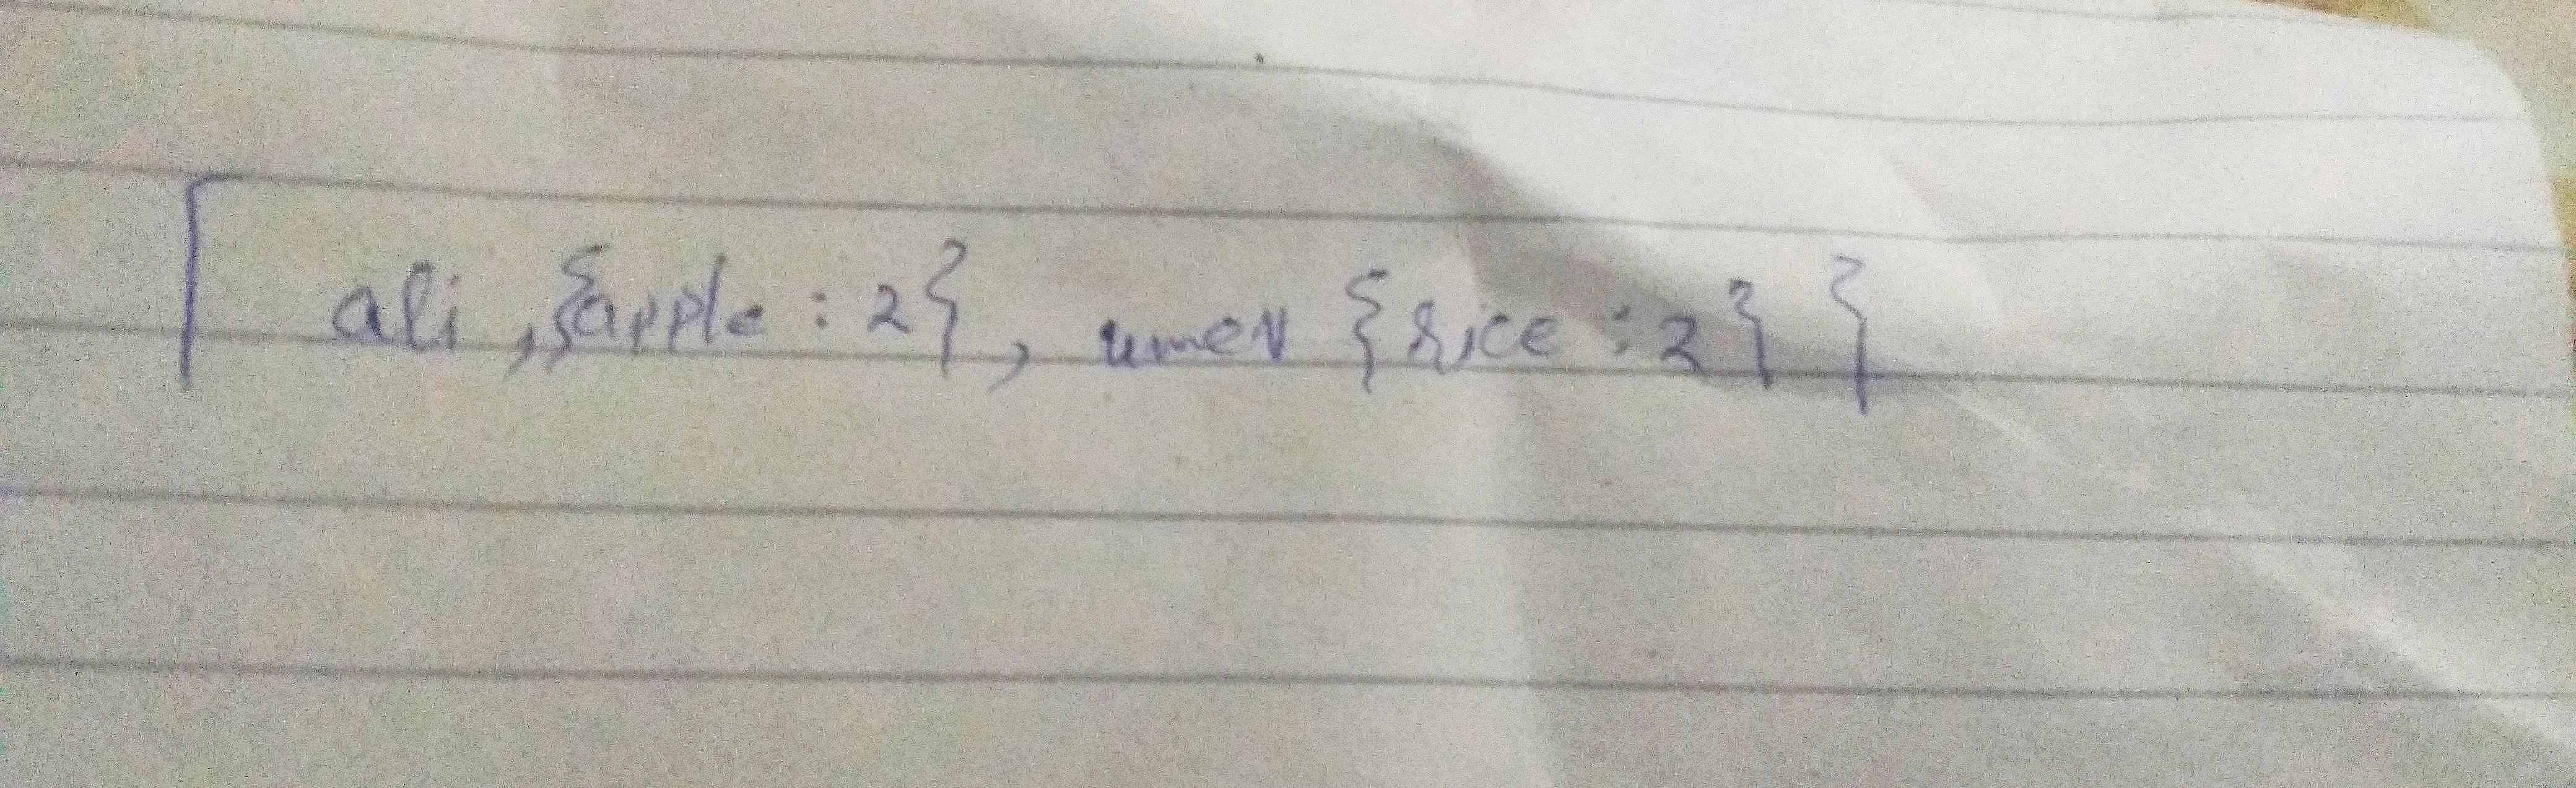 [ ali ,{apple : 2} , umer {rice : 2} }